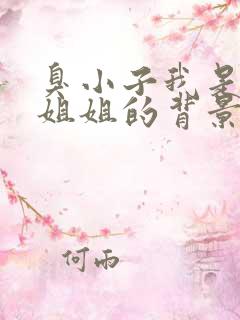 臭小子我是
姐姐的背景
何雨